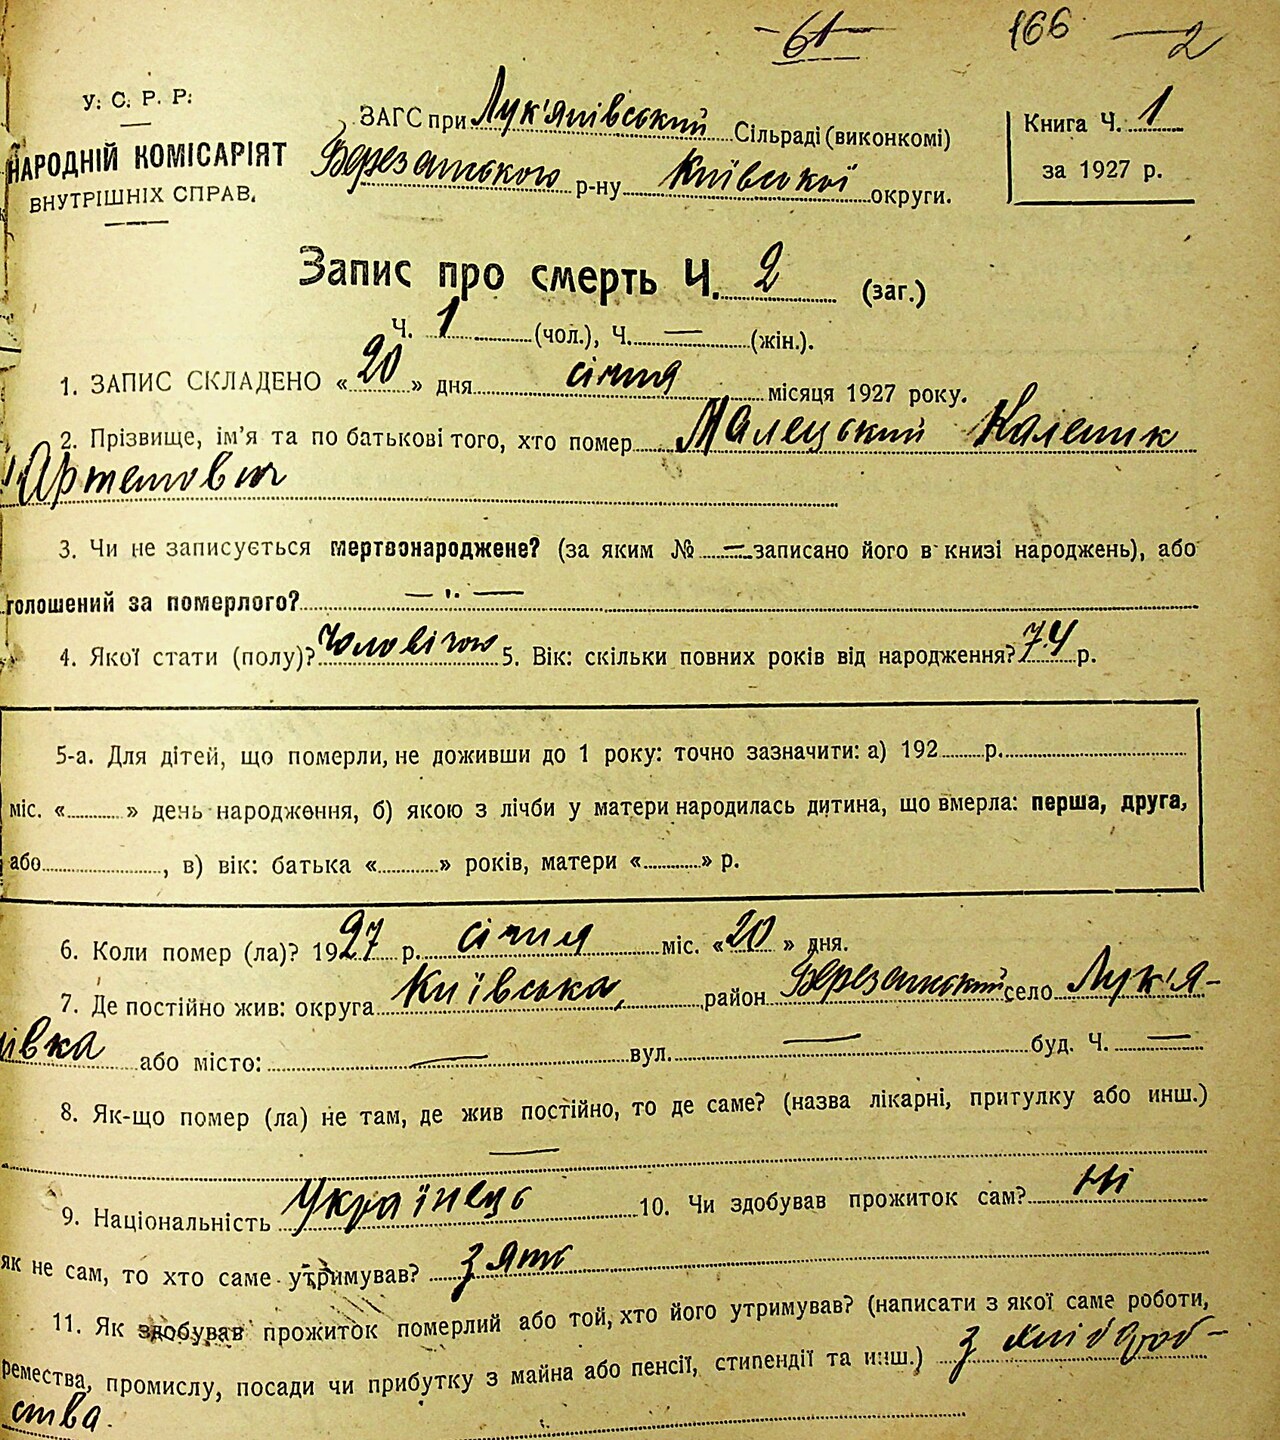 61 166 2
У. С. Р. Р.
НАРОДНІЙ КОМІСАРІЯТ
ВНУТРІШНІХ СПРАВ.
ЗАГС при Лук'янівський Сільраді (виконкомі)
Березанського р-ну Київської округи.
Книга Ч. 1
за 1927 р.
Запис про смерть Ч. 2 (заг.)
Ч. 1 (чол.), Ч. — (жін.).
1. ЗАПИС СКЛАДЕНО «20» дня січня місяця 1927 року.
2. Прізвище, ім'я та по батькові того, хто помер Малецький Каленик
Артемович
3. Чи не записується мертвонароджене? (за яким № — записано його в книзі народжень), або
голошений за померлого? — " —
4. Якої стати (полу)? Чоловічою 5. Вік: скільки повних років від народження? 74 р.
5-а. Для дітей, що померли, не доживши до 1 року: точно зазначити: а) 192 р.
міс. « » день народження, б) якою з лічби у матери народилась дитина, що вмерла: перша, друга,
або , в) вік: батька « » років, матери « » р.
6. Коли помер (ла)? 1927 р. січня міс. «20» дня.
7. Де постійно жив: округа Київська, район Березанський село Лук'я-
нівка або місто: — вул. — буд. Ч. —
8. Як-що помер (ла) не там, де жив постійно, то де саме? (назва лікарні, притулку або инш.)
—
9. Національність Українець 10. Чи здобував прожиток сам? Ні
як не сам, то хто саме утримував? зять
11. Як здобував прожиток померлий або той, хто його утримував? (написати з якої саме роботи,
ремества, промислу, посади чи прибутку з майна або пенсії, стипендії та инш.) з хлібороб-
ства.